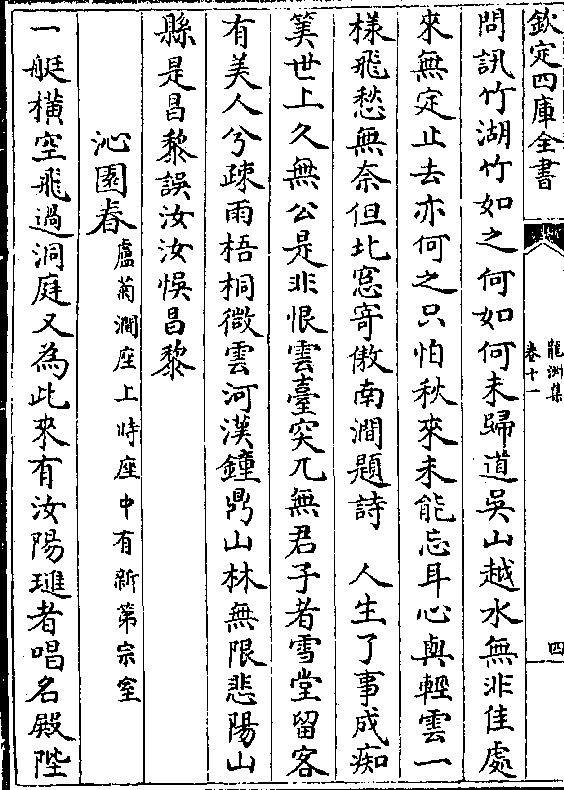 欽定四庫全書
龍洲集
卷十一
四
問訊竹湖竹如之何如何未歸道吳山越水無非佳處
來無定止去亦何之只怕秋來未能忘耳心與輕雲一
樣飛愁無奈但北窓寄傲南澗題詩　人生了事成痴
筭世上久無公是非恨雲臺突兀無君子者雪堂留客
有美人兮疎雨梧桐微雲河漢鐘鼎山林無限悲陽山
縣是昌黎誤汝汝悞昌黎
沁園春盧菊澗座上時座中有新第宗室
一艇横空飛過洞庭又為此來有汝陽璡者唱名殿陛